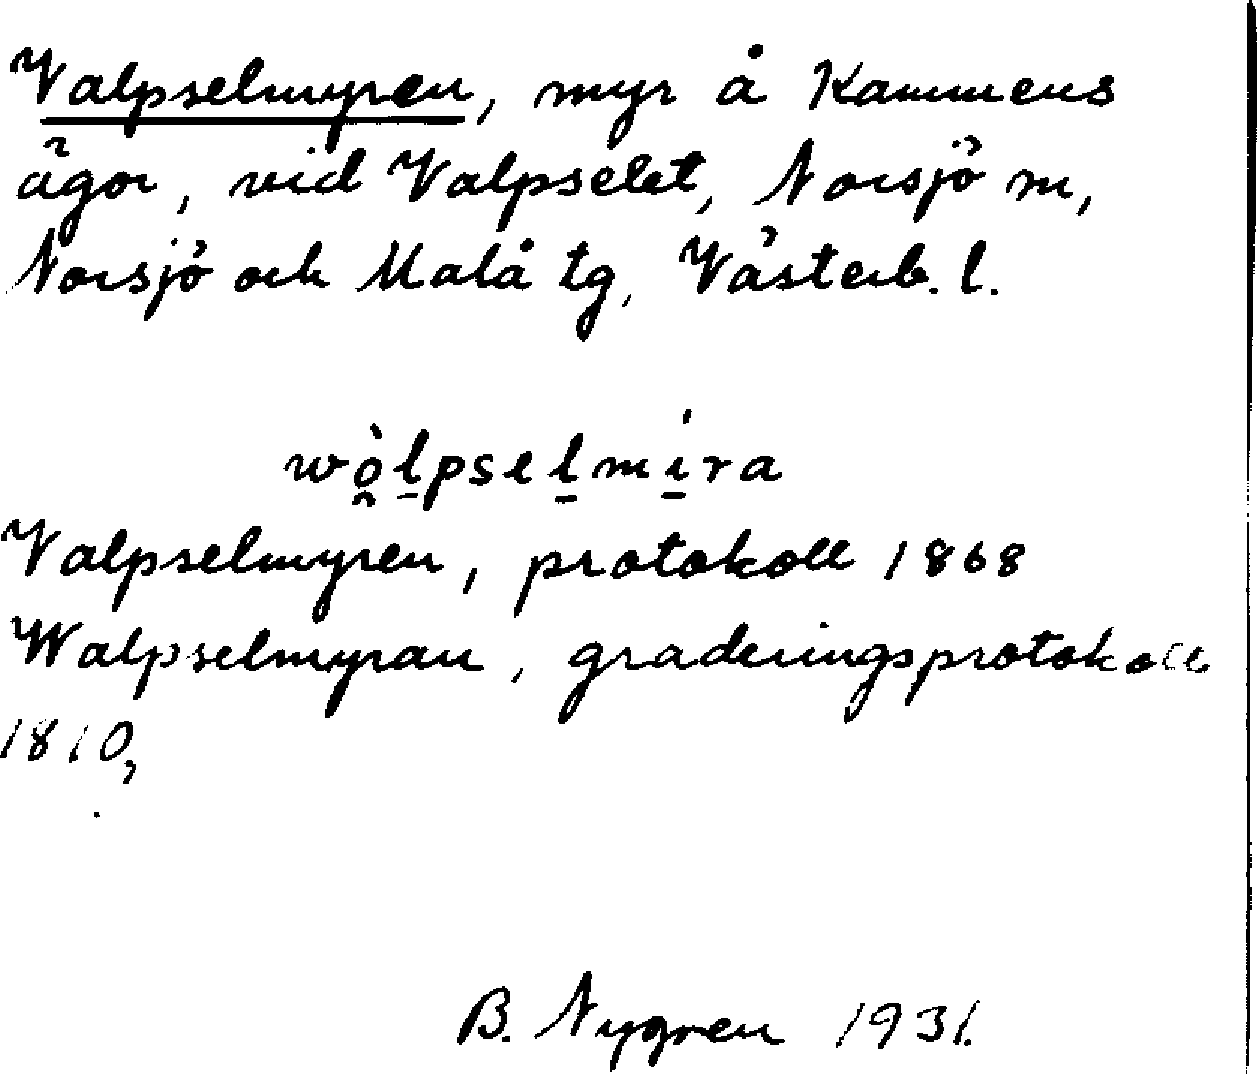 Valpselmyren, myr å Kammens
ägor, vid Valpselet, Norsjö m,
Norsjö och Malå tg, Västerb. l.
wò̯l̠psel̠mí̠ra
Valpselmyren, protokoll 1868
Walpselmyran, graderingsprotokoll
1810,
B. Nygren 1931.